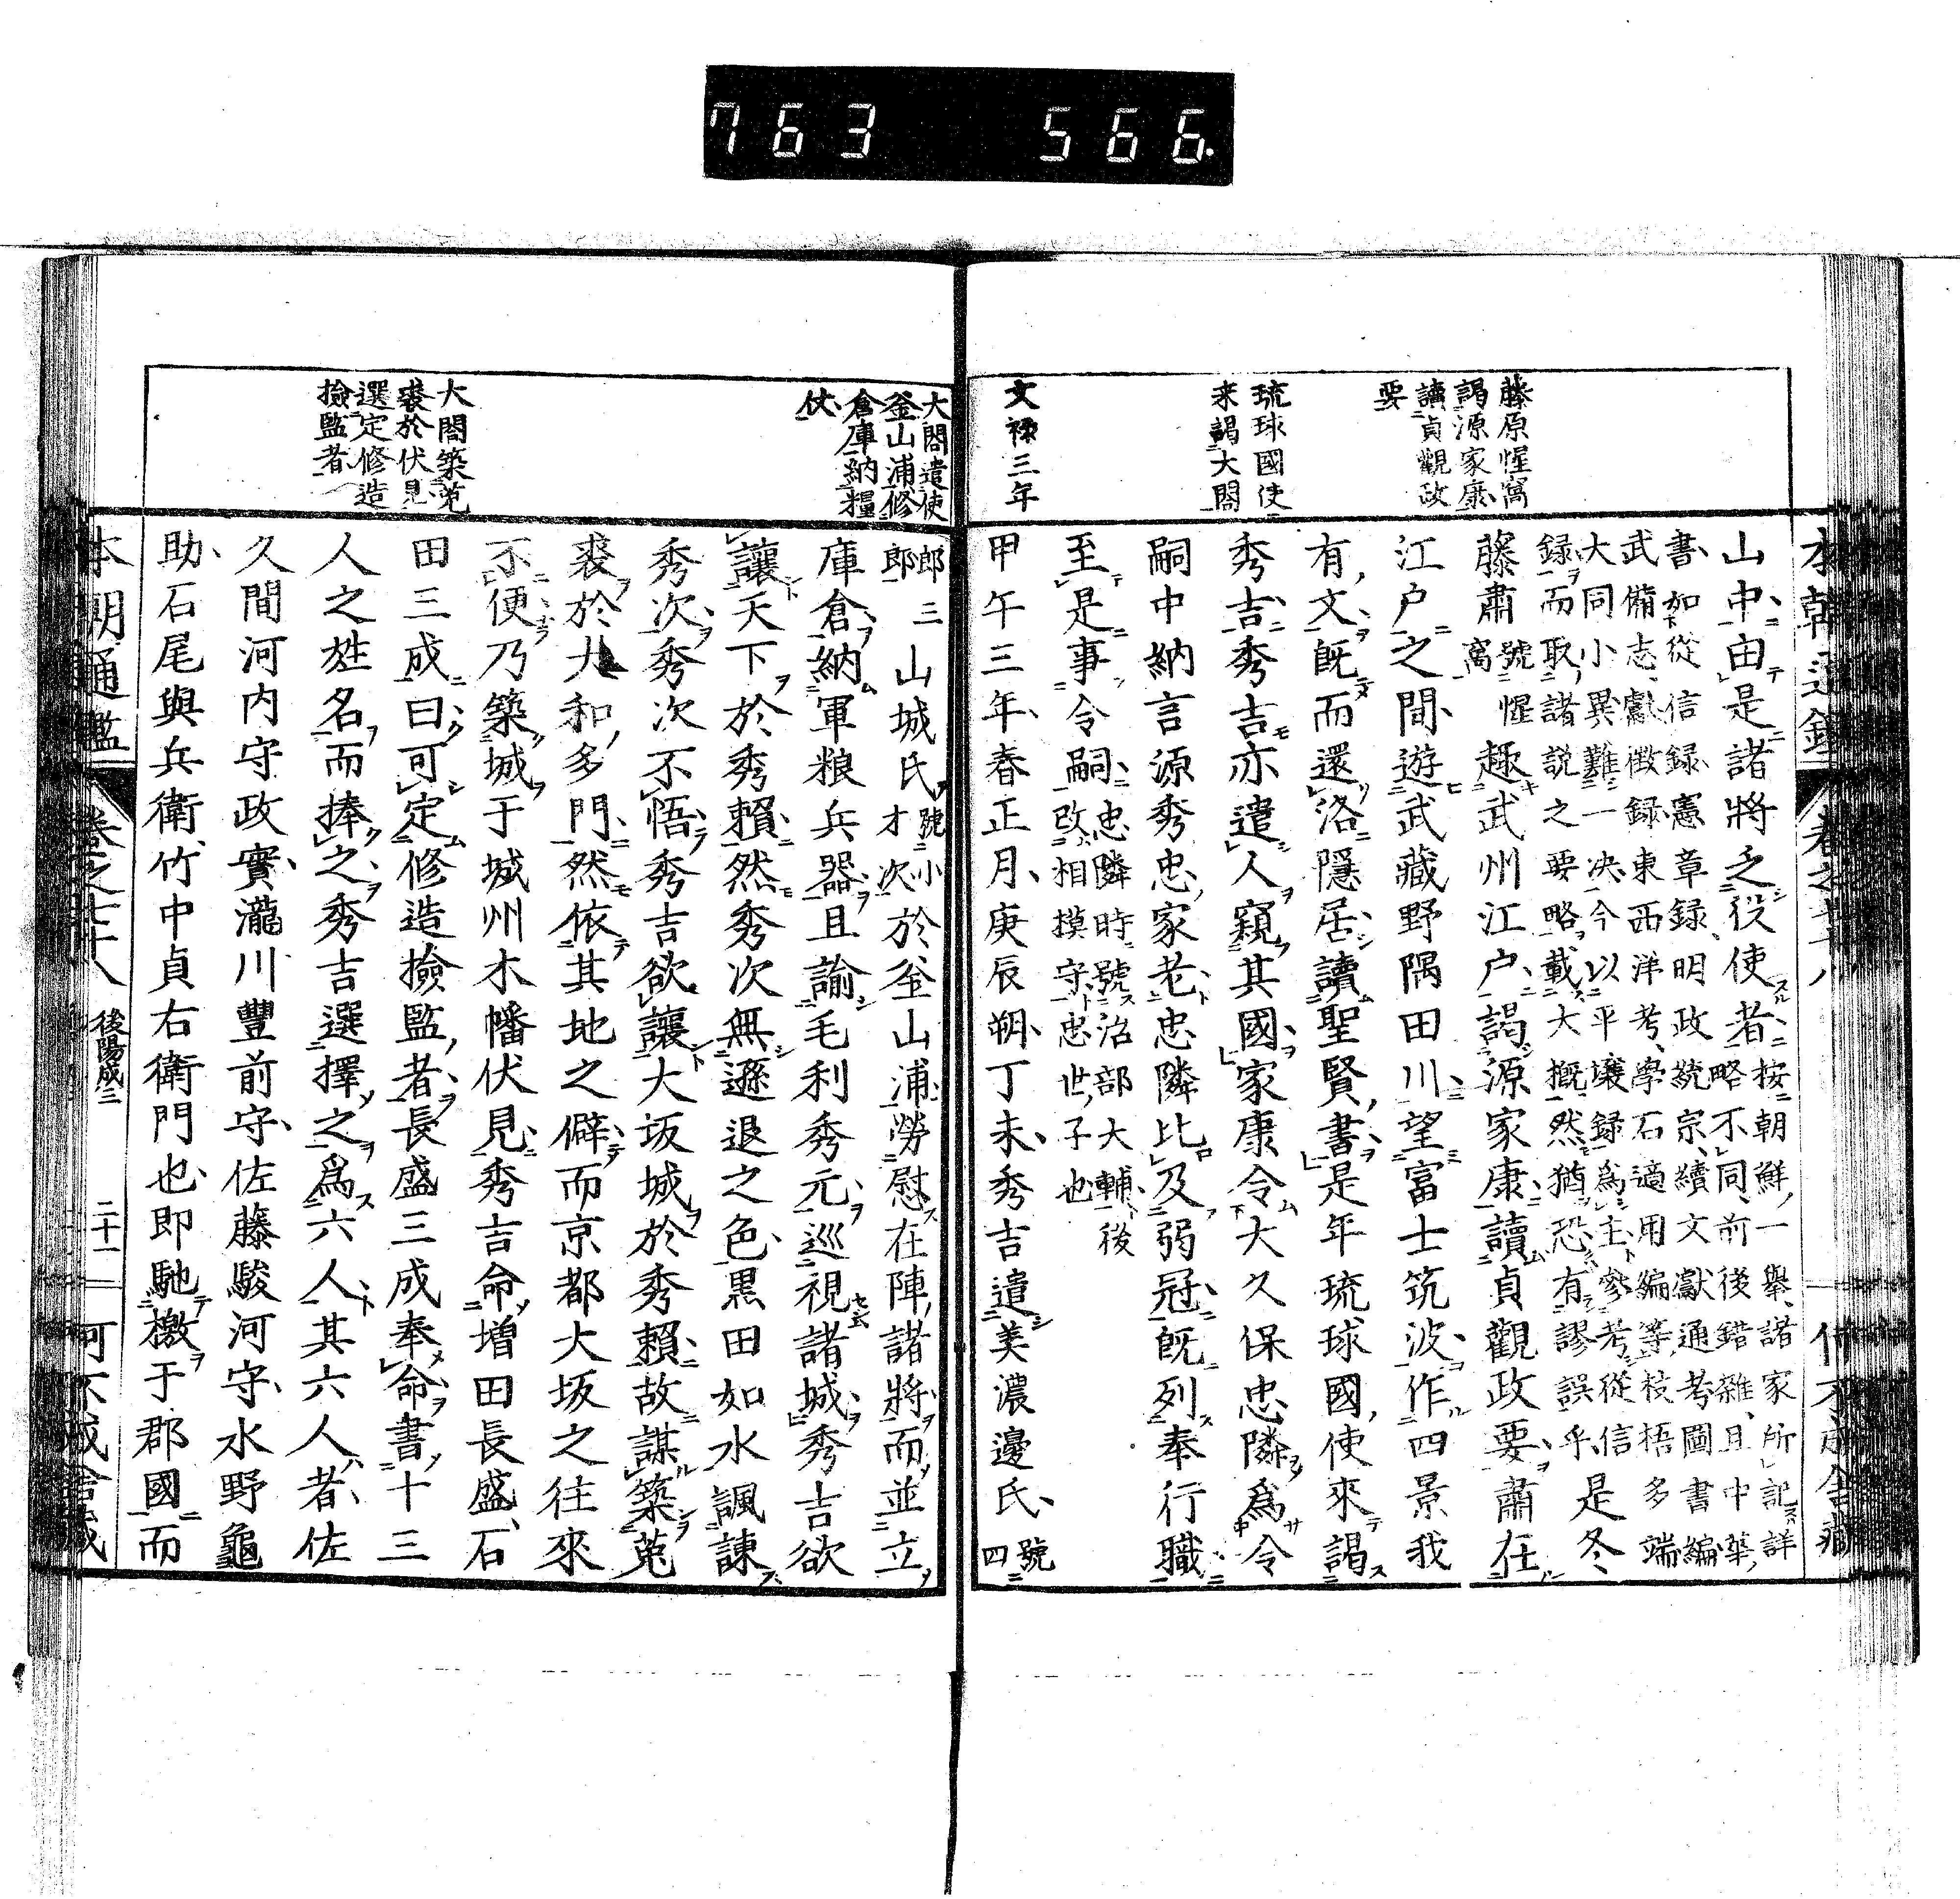 763 566.
藤原惺窩
謁源家康
讀貞觀政
要
琉球國使
来謁大閤
文祿三年
山中由是諸將之役使者
按朝鮮一舉諸家所記詳
略不同前後錯雜且中華
書如從信録憲章録明政統宗續文獻通考圖書編
武備志獻徴録東西洋考學石適用編等枝梧多端
大同小異難一决今以平壤録為主參考從信
録而取諸説之要略載大概然猶恐有謬誤乎
是冬
藤肅
號惺
窩
趣武州江户謁源家康讀貞觀政要肅在
江户之間遊武藏野隅田川望富士筑波作四景我
有文既而還洛隱居讀聖賢書是年琉球國使來謁
秀吉秀吉亦遣人窺其國家康令大久保忠隣為令
嗣中納言源秀忠家老忠隣比及弱冠既列奉行職
至是事令嗣
忠隣時號治部大輔後
改相摸守忠世子也
甲午三年春正月庚辰朔丁未秀吉遣美濃邊氏
號
四
本朝通鑑
卷之七十八
大閤遣使
釜山浦修
倉庫納糧
仗
大閤築菟
裘於伏見
選定修造
撿監者
郎三
郎
山城氏
號小
才次
於釜山浦勞慰在陣諸將而並立
庫倉納軍粮兵器且諭毛利秀元巡視諸城秀吉欲
讓天下於秀賴然秀次無遜退之色黒田如水諷諫
秀次秀次不悟秀吉欲讓大坂城於秀賴故謀築菟
裘於大和多門然依其地之僻而京都大坂之往來
不便乃築城于城州木幡伏見秀吉命増田長盛石
田三成曰可定修造撿監者長盛三成奉命書十三
人之姓名而捧之秀吉選擇之為六人其六人者佐
久間河内守政實瀧川豐前守佐藤駿河守水野龜
助石尾與兵衛竹中貞右衛門也即馳檄于郡國而
本朝通鑑
卷之七十八
後陽成三
二十一